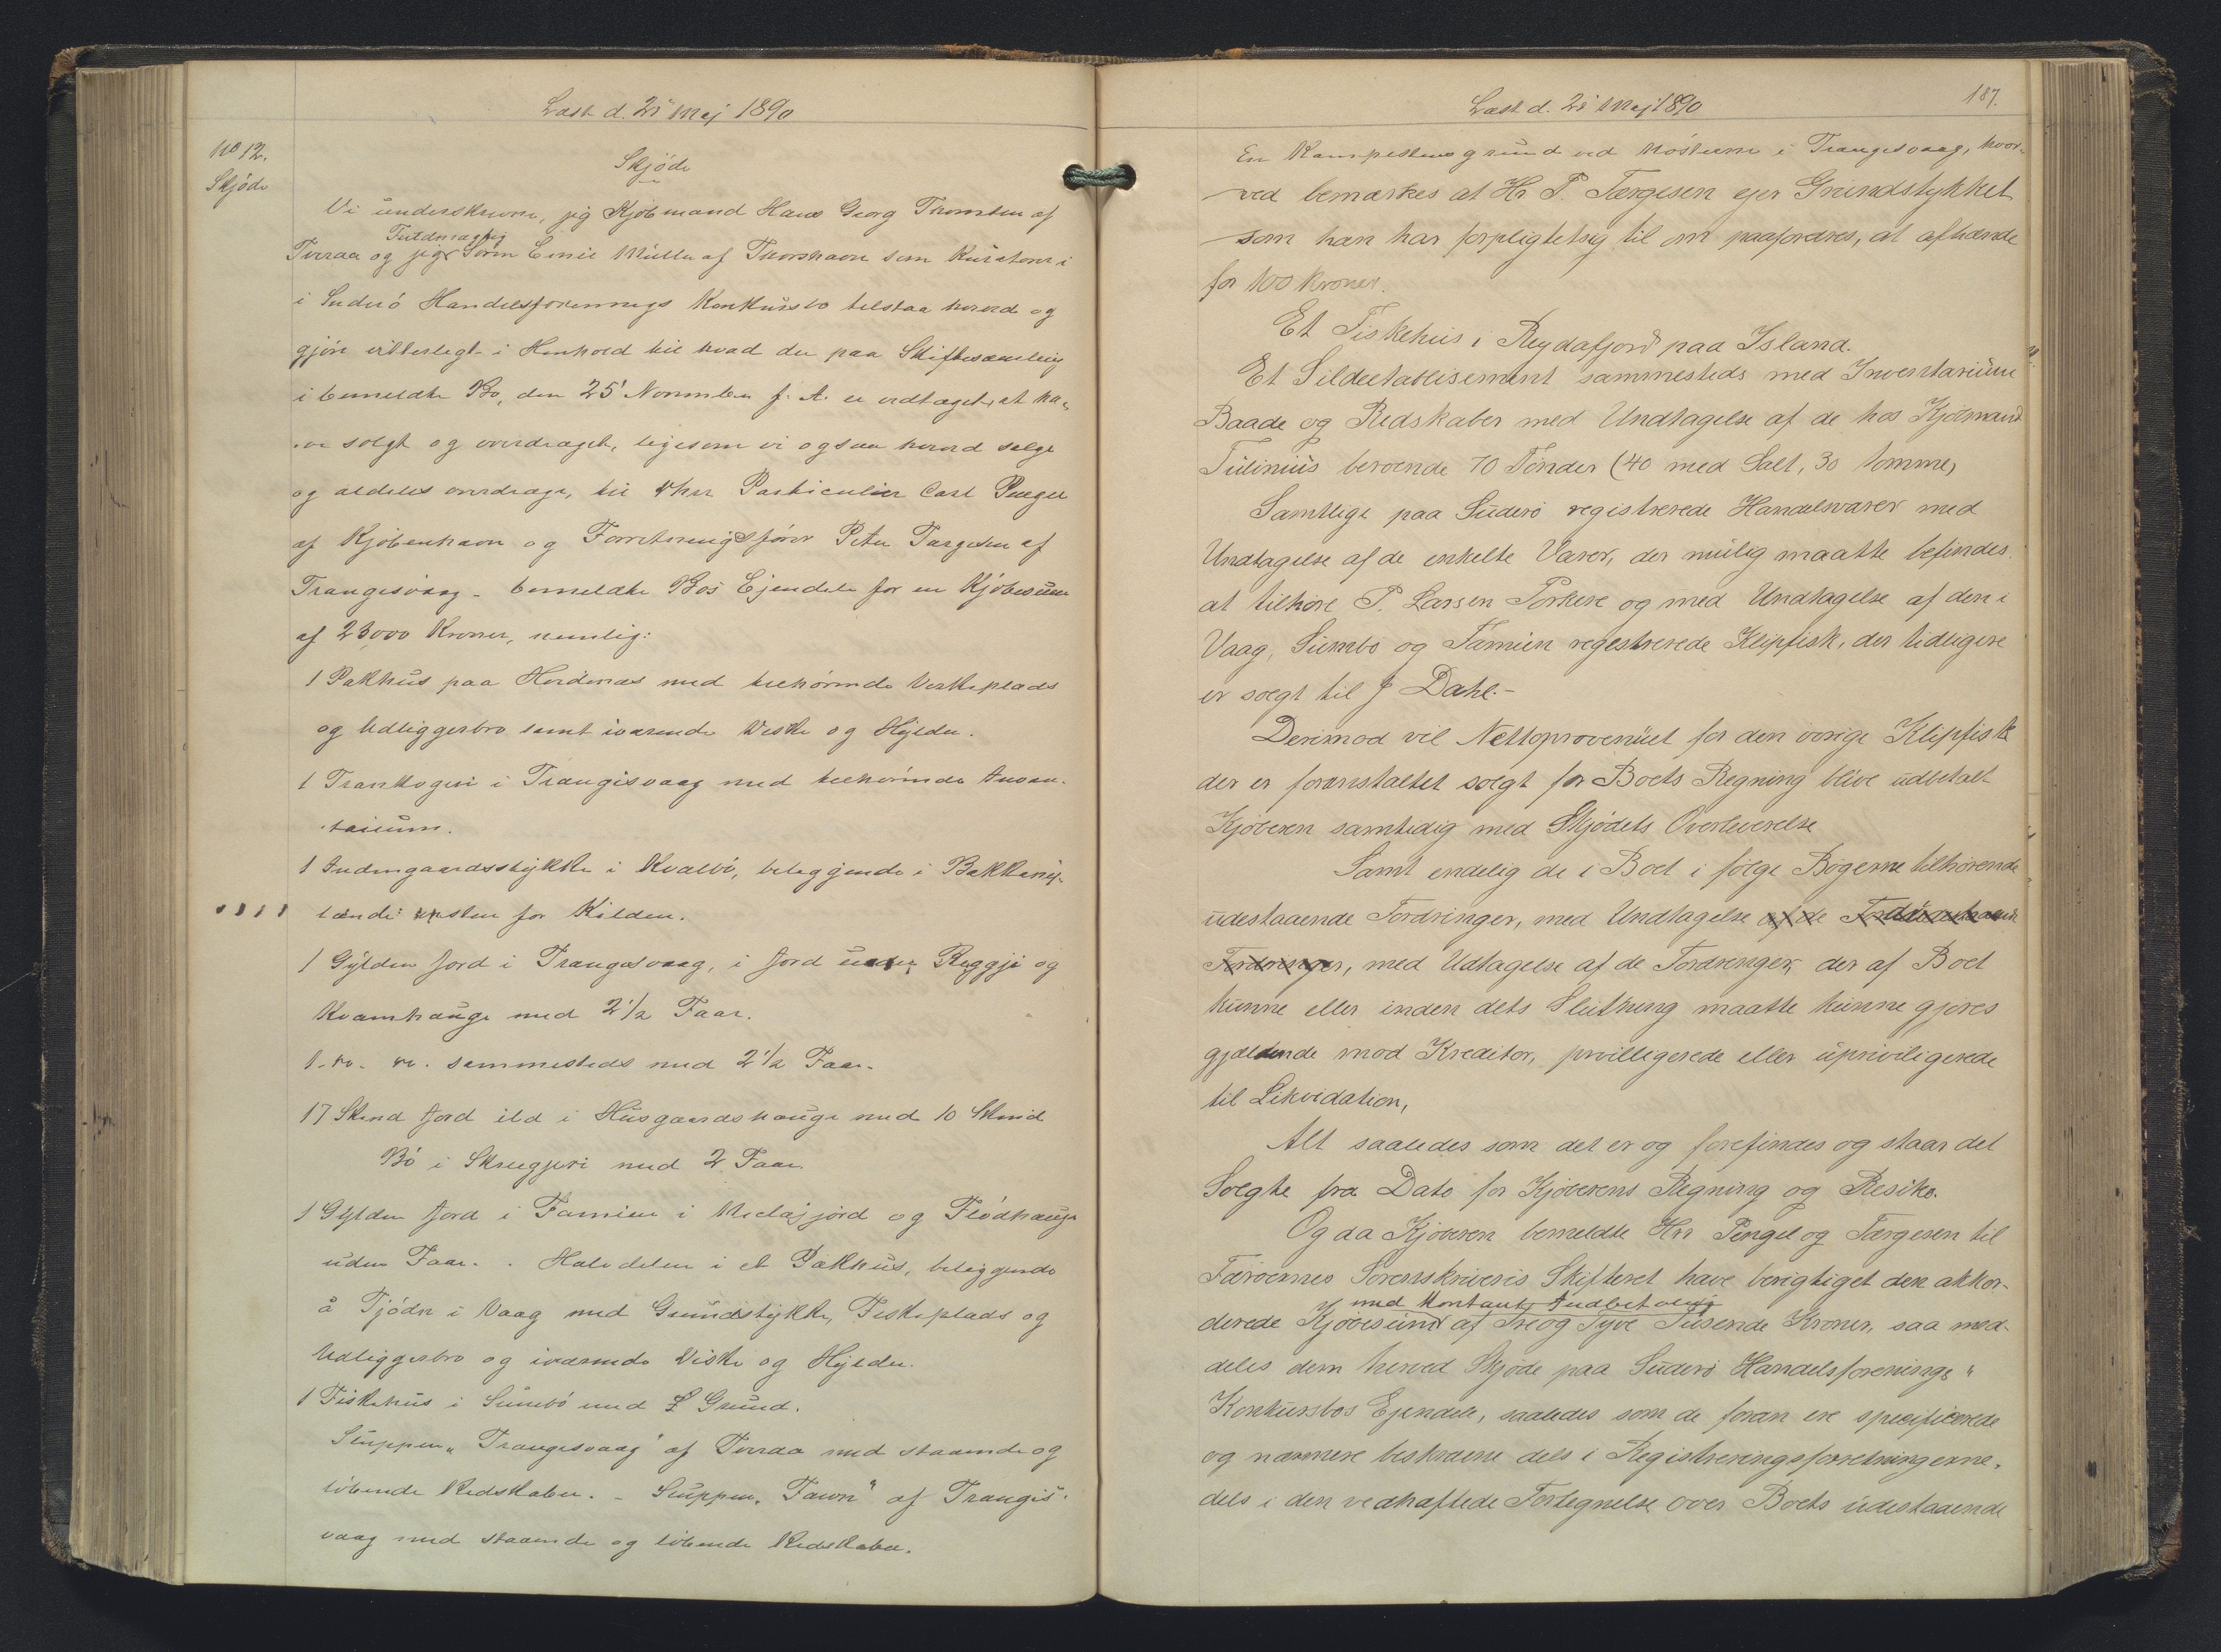 Læst d. 21 Maj 1890
No 12.
Skjöde
Skjöde
Vi underskrevne, jeg Kjöbmand Hans Georg Thomsen af
Fuldmægtig
Tveraa og jeg Sören Emil Müller af Thorshavn som Kuratorer i
i Suderö Handelsforenings Konkursbo tilstaa herved og
gjöre vitterligt i Henhold til hvad der paa Skiftesamling
i bemeldte Bo, den 25' November f. A. er vedtaget, at ha-
-ve solgt og overdraget, ligesom vi ogsaa herved sælge
og aldeles overdrage, til Hrr Particulier Carl Pengel
af Kjöbenhavn og Forretningsförer Peter Tærgesen af
Trangisvaag - bemeldte Bos Ejendele for en Kjöbesum
af 23000 Kroner, nemlig:
1 Pakhus paa Hordenæs med tilhörende Vaskeplads
og Udliggerbro samt iværende Diske og Hylder.
1 Trankogeri i Trangisvaag med tilhörende Inven-
-tarium.
1 Indengaardsstykke i Kvalbö, beliggende i Bakkerüj-
lænde: vesten for Kilden.
1 Gylden Jord i Trangesvaag, i Jord under Ryggje og
Kvamhauge med 2 1/2 Faar.
1. do. do. sammesteds med 2 1/2 Faar.
17 Skind Jord ild i Husgaardshauge med 10 Skind
Bö i Skruggjeri med 2 Faar.
1 Gylden Jord i Famien i Medaljord og Flödhauge
uden Faar. - Halvdelen i et Pakhus, beliggende
å Tjödn i Vaag med Grundstykke, Fiskeplads og
Udliggerbro og iværende Diske og Hylder.
1 Fiskehus i Sumbö med Grund.
Sluppen „Trangesvaag" af Tveraa med staaende og
löbende Redskaber. - Sluppen „Fawn" af Trangis-
vaag med staaende og löbende Redskaber.
Læst d. 21 Maj 1890
187.
En Kampestensgrund ved Nösterne i Trangesvaag, hvor-
ved bemærkes at Hr. P. Tærgesen ejer Grundstykket
som han har forpligtet sig til om paafordres, at afhænde
for 100 Kroner.
Et Fiskehus i Reydafjord paa Island.
Et Sildeetablisement sammesteds med Inventarium
Baade og Redskaber med Undtagelse af de hos Kjöbmand
Tulinius beroende 70 Tønder (40 med Salt, 30 tomme)
Samtlige paa Suderö registrerede Handelsvarer med
Undtagelse af de enkelte Varer, der mulig maatte befindes
at tilhöre P. Larsen Porkere og med Undtagelse af den i
Vaag, Sumbö og Famien regestrerede Klipfisk, der tidligere
er solgt til J Dahl.-
Derimod vil Nettoprovenuet for den övrige Klipfisk
der er foranstaltet solgt for Boets Regning blive udbetalt
Kjöberen samtidig med Skjödets Overleverelse
Samt endelig de i Boet i fölge Bögerne tilhörende
udestaaende Fordringer, med Undtagelse af de
Fordringer, med Udtagelse af de Fordringer, der af Boet
kunne eller inden dets Slutning maatte kunne gjöres
gjældende mod Kreditor, privilligerede eller upriviligerede
til Likvidation,
Alt saaledes som det er og forefindes og staar det
Solgte fra Dato for Kjöberens Regning og Resiko.
Og da Kjöberen bemeldte Hrr Pengel og Tærgesen til
Færöernes Sorenskriveris Skifteret have berigtiget den akkor-
med Kontant Indbetaling
derede Kjöbesum af Tre og Tyve Tusende Kroner, saa med-
deles dem herved Skjöde paa Suderö Handelsforenings "
Konkursbos Ejendele, saaledes som de foran ere specificerede
og nærmere beskrevne dels i Registreringsforretningerne,
dels i den vedhæftede Fortegnelse over Boets udestaaende